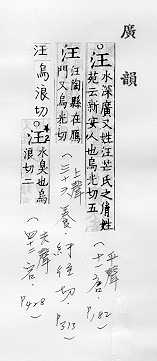 廣韻
汪
水深廣又姓汪芒氏之胤姓
苑云新安人也烏光切五
(平聲
十一唐.
P.182)
汪
汪陶縣在鴈
門又烏光切
(上聲
三十六養.紆往切.
P.313)
汪 烏浪切
汪 *2
水臭也烏
浪切二
(去聲
四十二宕.
P.428)